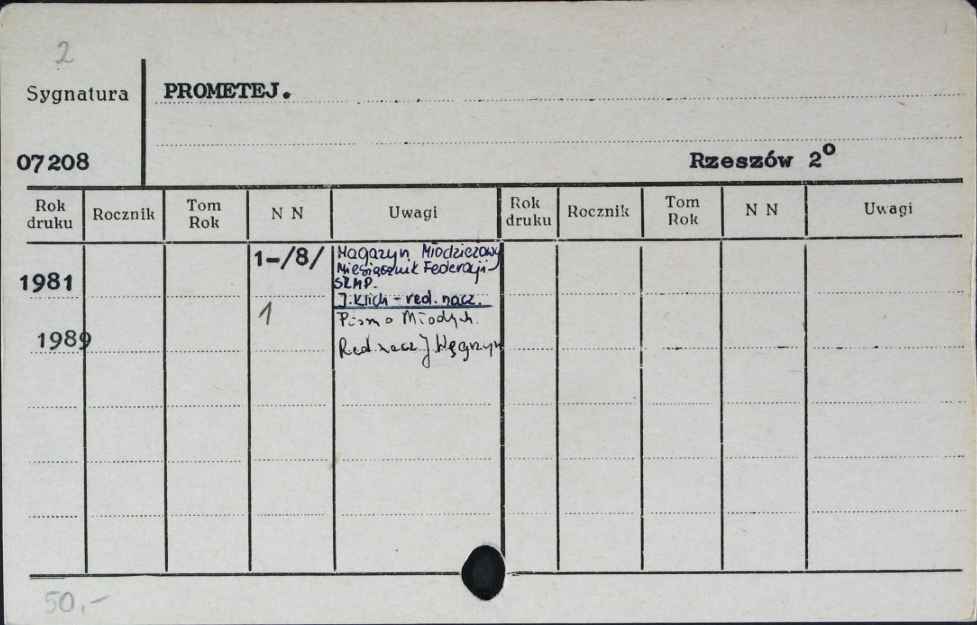 2
Sygnatura
PROMETEJ.
07208
Rzeszów 2º
Rok druku Rocznik Tom Rok N N Uwagi Rok druku Rocznik Tom Rok N N Uwagi
1981 1-/8/ Magazyn Młodzieżowy
Miesięcznik Federacji
SZMP.
J. Klich - red. nacz.
1989 1 Pismo Młodych.
Red. nacz J Węgrzyn
50.-